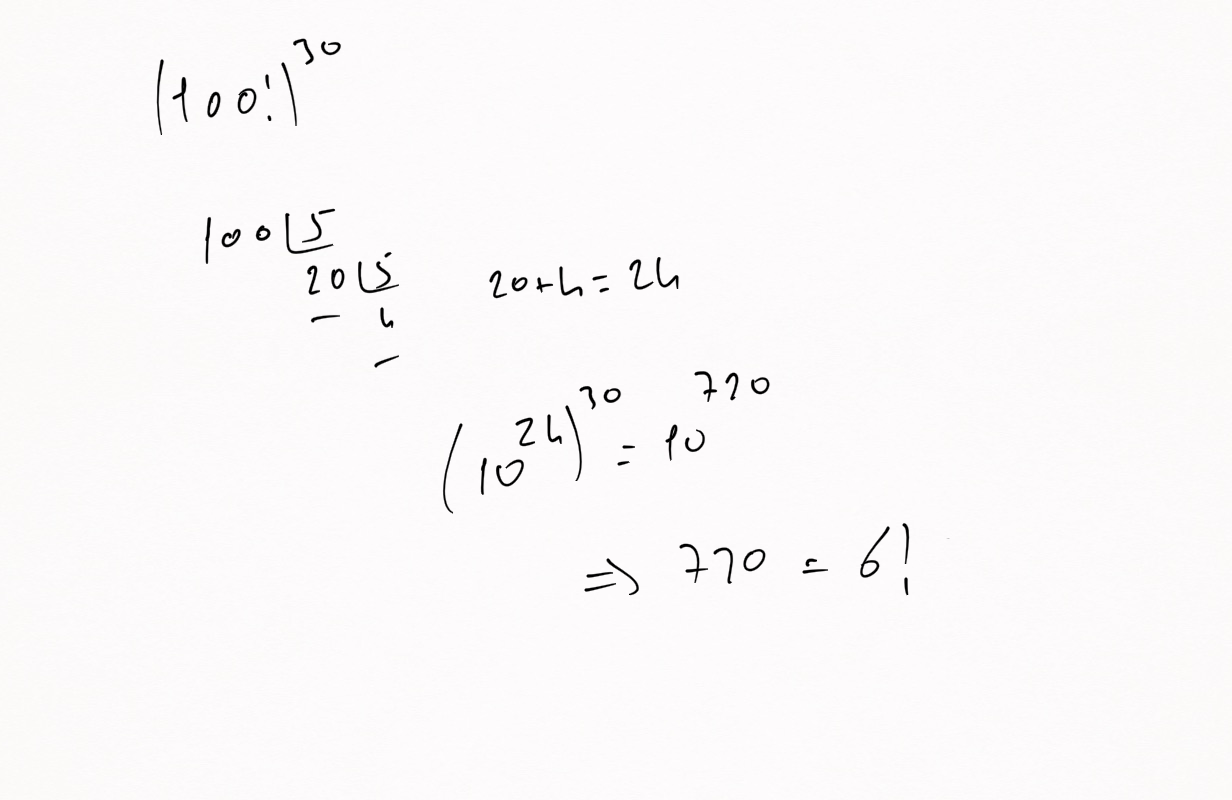 (100!)^30
100 | 5
20 | 5 20+4 = 24
4
(10^24)^30 = 10^720
⇒ 720 = 6!